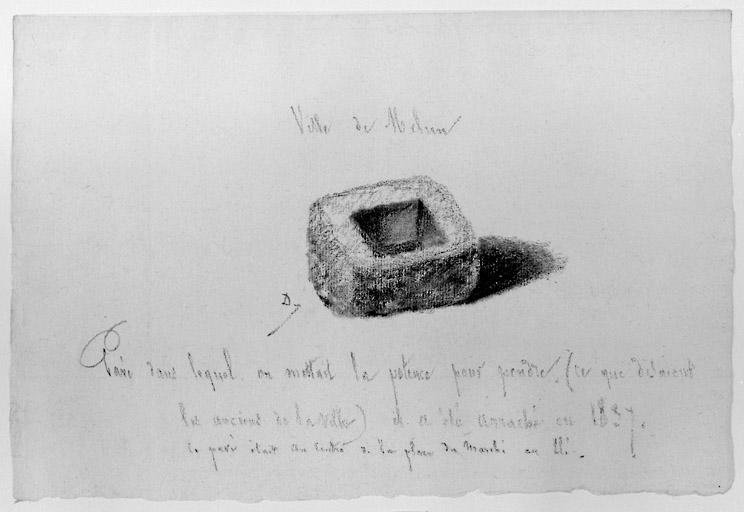 Ville de Melun
D
Pavé dans lequel on mettait la potence pour pendre. (ce que disaient
les anciens de la ville) il a été arraché en 1837.
ce pavé était au centre de la place du Marché au blé.